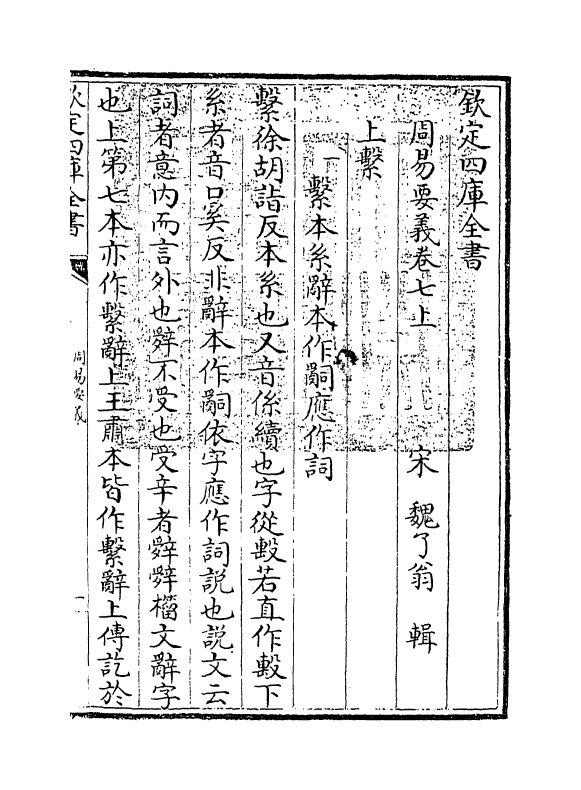 欽定四庫全書
周易要義卷七上
宋 魏了翁 輯
上繫
一 繫本系辭本作嗣應作詞
繫徐胡詣反本系也又音係續也字從毄若直作毄下
系者音口奚反非辭本作嗣依字應作詞說也說文云
詞者意内而言外也辤不受也受辛者辤辤籀文辭字
也上第七本亦作繫辭上王肅本皆作繫辭上傳訖於
欽定四庫全書
周易要義
一